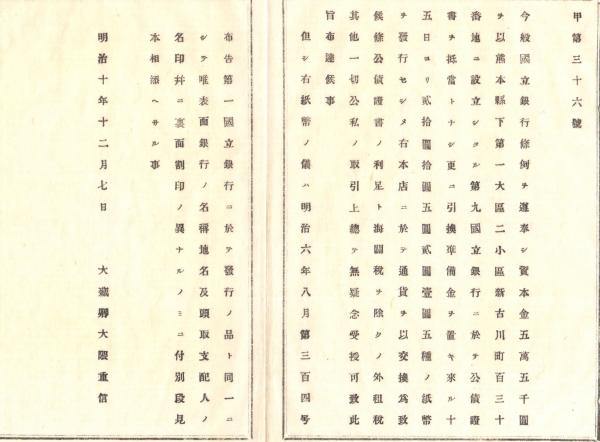 甲第三十六號
今般國立銀行條例ヲ遵奉シ資本金五萬五千圓
ヲ以熊本縣下第一大區二小區新古川町百三十
番地ニ設立シタル第九國立銀行ニ於テ公債證
書ヲ抵當トナシ更ニ引換準備金ヲ置キ來ル十
五日ヨリ貳拾圓拾圓五圓貳圓壹圓五種ノ紙幣
ヲ發行セシメ右本店ニ於テ通貨ヲ以交換爲致
候條公債證書ノ利足ト海關稅ヲ除クノ外租稅
其他一切公私ノ取引上總テ無疑念受授可致此
旨布達候事
但シ右紙幣ノ儀ハ明治六年八月第三百四号
布告第一國立銀行ニ於テ發行ノ品ト同一ニ
シテ唯表面銀行ノ名稱地名及頭取支配人ノ
名印幷ニ裏面割印ノ異ナルノミニ付別段見
本相添ヘサル事
明治十年十二月七日
大藏卿大隈重信